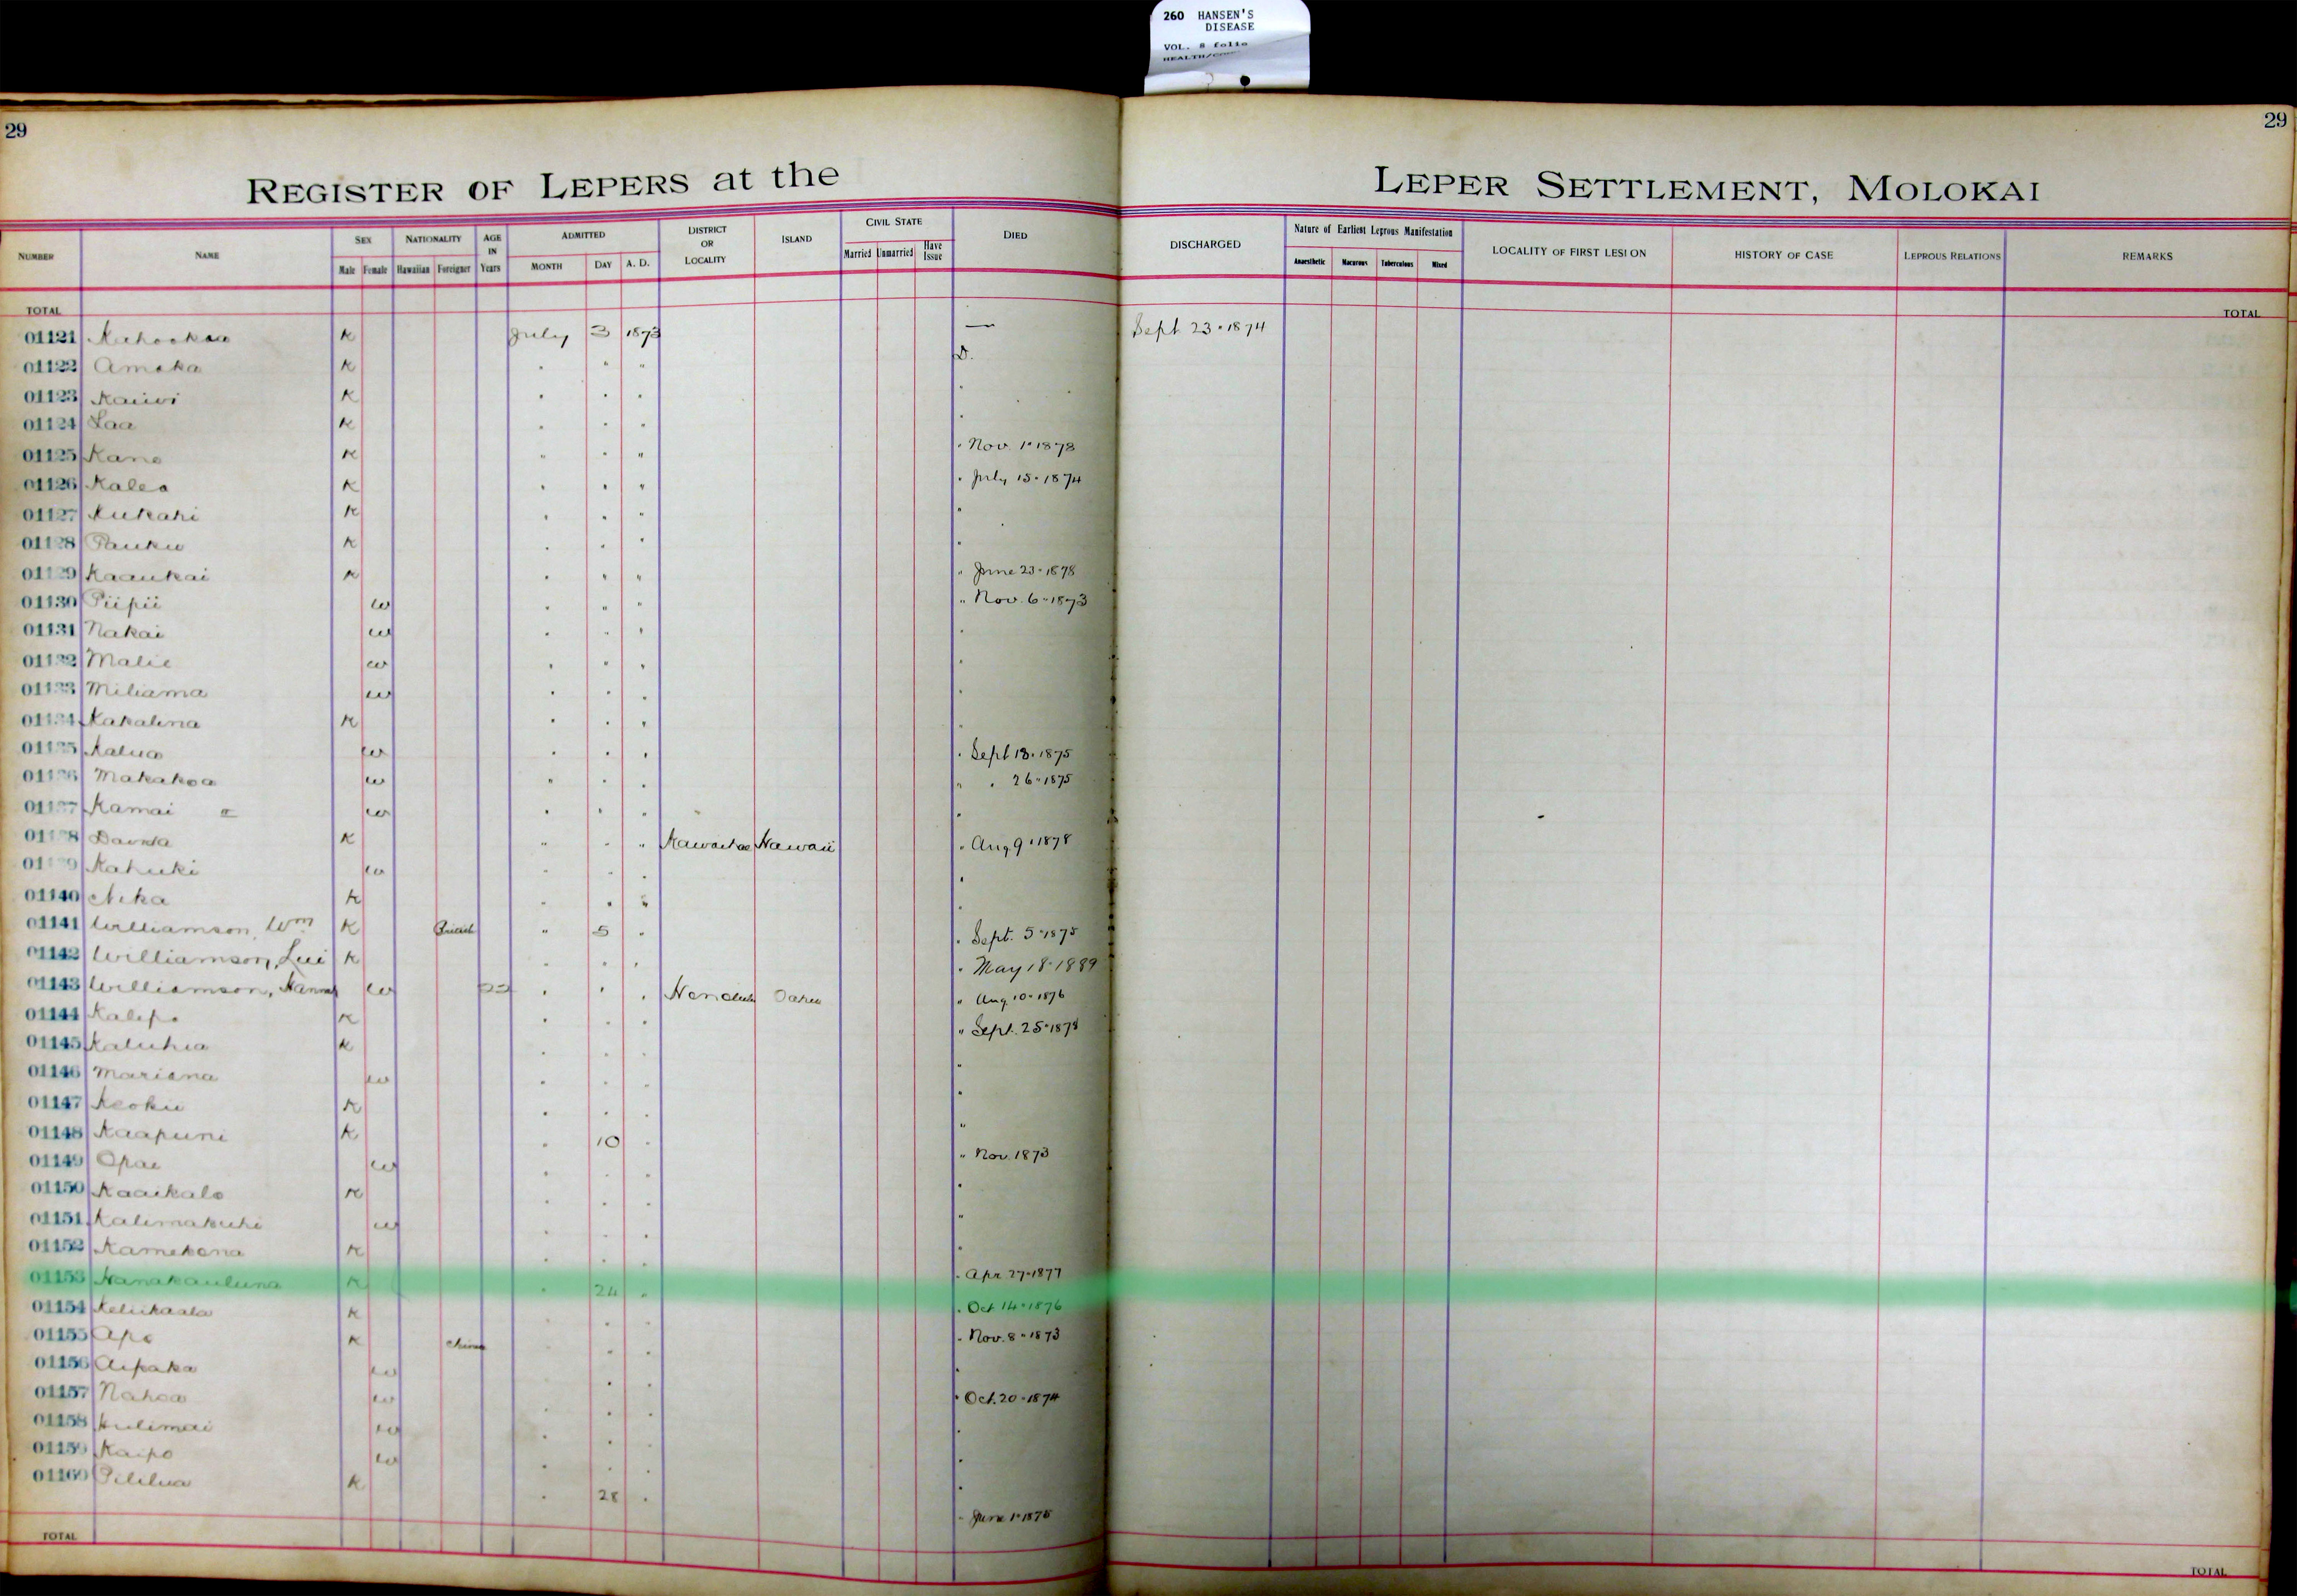 260 HANSEN'S
DISEASE
VOL. 8 folio
29
29
REGISTER OF LEPERS at the
LEPER SETTLEMENT, MOLOKAI
NUMBER NAME SEX NATIONALITY AGE IN Years ADMITTED DISTRICT OR LOCALITY ISLAND CIVIL STATE DIED DISCHARGED Nature of Earliest Leprous Manifestation LOCALITY OF FIRST LESION HISTORY OF CASE LEPROUS RELATIONS REMARKS
Male Female Hawaiian Foreigner MONTH DAY A. D. Married Unmarried Have Issue Anaesthetic Macurous Tuberculous Mixed
TOTAL TOTAL
01121 K July 3 1873 — Sept 23 · 1874
01122 Amaka K " " " D.
01123 Kaiwi K " " " "
01124 Laa K " " " "
01125 Kane K " " " " Nov. 1 · 1878
01126 Kalea K " " " " July 15 · 1874
01127 Kukahi K " " " "
01128 Pauku K " " " "
01129 Kaaukai K " " " " June 23 · 1878
01130 Piipii w " " " " Nov. 6 · 1873
01131 Nakai w " " " "
01132 Malie w " " " "
01133 Miliama w " " " "
01134 Kakalina K " " " "
01135 Kalua w " " " " Sept 18 · 1875
01136 Makakoa w " " " " " 26 · 1875
01137 Kamai w " " " "
01138 K " " " Kawaihae Hawaii " Aug 9 · 1878
01139 Kahuki w " " " "
01140 Nika K " " " "
01141 Williamson, Wm K British " 5 " " Sept. 5 · 1875
01142 Williamson, Lui K " " " " May 18 · 1889
01143 Williamson, Hannah w " " " Honolulu Oahu " Aug. 10 · 1876
01144 Kalepo K " " " " Sept. 25 · 1878
01145 Kaluhia K " " " "
01146 Mariana w " " " "
01147 Keoku K " " " "
01148 Kaapuni K " 10 " "
01149 Opae w " " " " Nov. 1873
01150 Kaaikalo K " " " "
01151 Kalimakuhi w " " " "
01152 Kamekona K " " " "
01153 Hanakauluna K " 24 " " Apr 27 · 1877
01154 Keliikaala K " " " " Oct 14 · 1876
01155 Apo K China " " " " Nov. 8 · 1873
01156 Aipaka w " " " "
01157 Nahoa w " " " " Oct. 20 · 1874
01158 Kulimai w " " " "
01159 Kaipo w " " " "
01160 Pililua K " 28 " "
" June 1 · 1875
TOTAL TOTAL